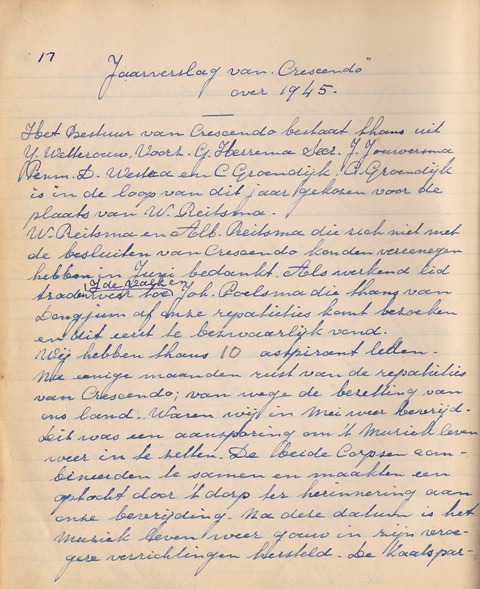 17
Jaarverslag van "Crescendo"
over 1945.
Het Bestuur van Crescendo bestaat thans uit
Y. Wetterauw, Voorz. G. Herrema Secr. J. Jouwersma
Penm. D. Westra en C Groendijk. C. Groendijk
is in de loop van dit jaar gekozen voor de
plaats van W. Reitsma.
W. Reitsma en Alb. Reitsma die zich niet met
de besluiten van Crescendo konden vereenegen
hebben in Juni bedankt. Als werkend lid
J de Valk en
traden weer toe Joh. Poelsma die thans van
Dongjum af onze repatities komt bezoeken
en dit eerst te bezwaarlijk vond.
Wij hebben thans 10 aspirant leden.
Na eenige maanden rust van de repatities
van Crescendo; van wege de bezetting van
ons land. Waren wij in Mei weer bevrijd.
Dit was een aansporing om 't Muziek leven
weer in te zetten. De beide Corpsen com-
bineerden te samen en maakten een
optocht door 't dorp ter herinnering aan
onze bevrijding. Na deze datum is het
Muziek leven weer gauw in zijn vroe-
gere verrichtingen hersteld. De Kaatspar-